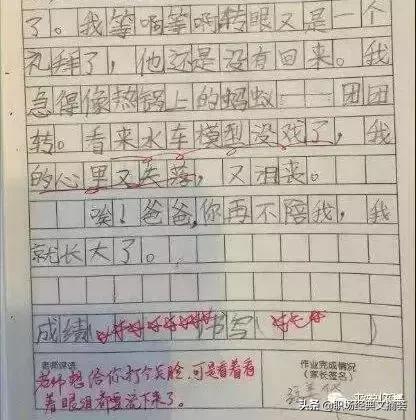 了。我等啊等啊转眼又是一个
礼拜了，他还是没有回来。我
急得像热锅上的蚂蚁——团团
转。看来水车模型没戏了，我
的心里又失落，又沮丧。
唉！爸爸，你再不陪我，我
就长大了。
成绩(好好好好好好好)书写(好)
老师评语
老师想给你打个笑脸，可是看着看
着眼泪都要流下来了。
作业完成情况
(家长签名)
头条@职场经典文摘荟